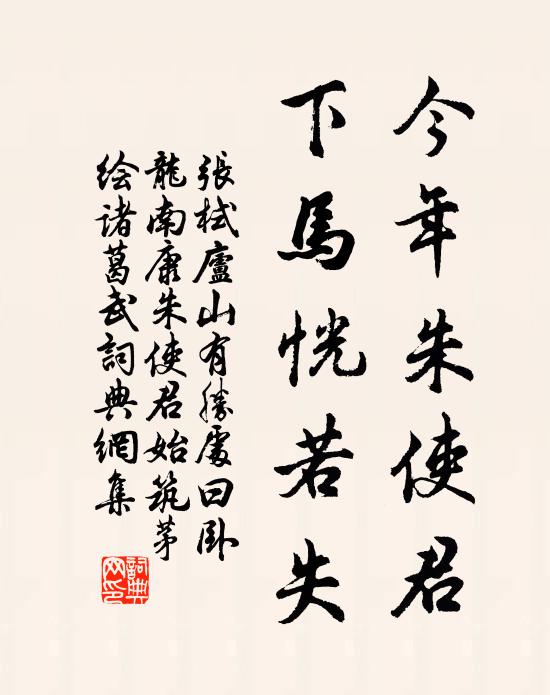 今年朱使君
下馬恍若失
張栻廬山有勝處曰卧
龍南康朱使君始筑茅
绘诸葛武詞典網集
詞典
网印